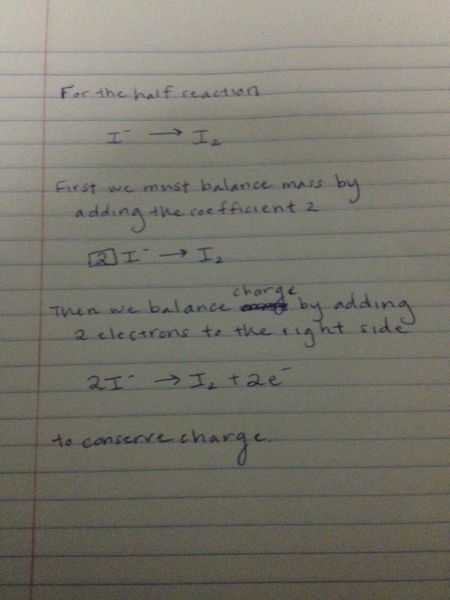 For the half reaction
I⁻ → I₂
First we must balance mass by
adding the coefficient 2
2 I⁻ → I₂
Then we balance charge by adding
2 electrons to the right side
2I⁻ → I₂ + 2e⁻
to conserve charge.